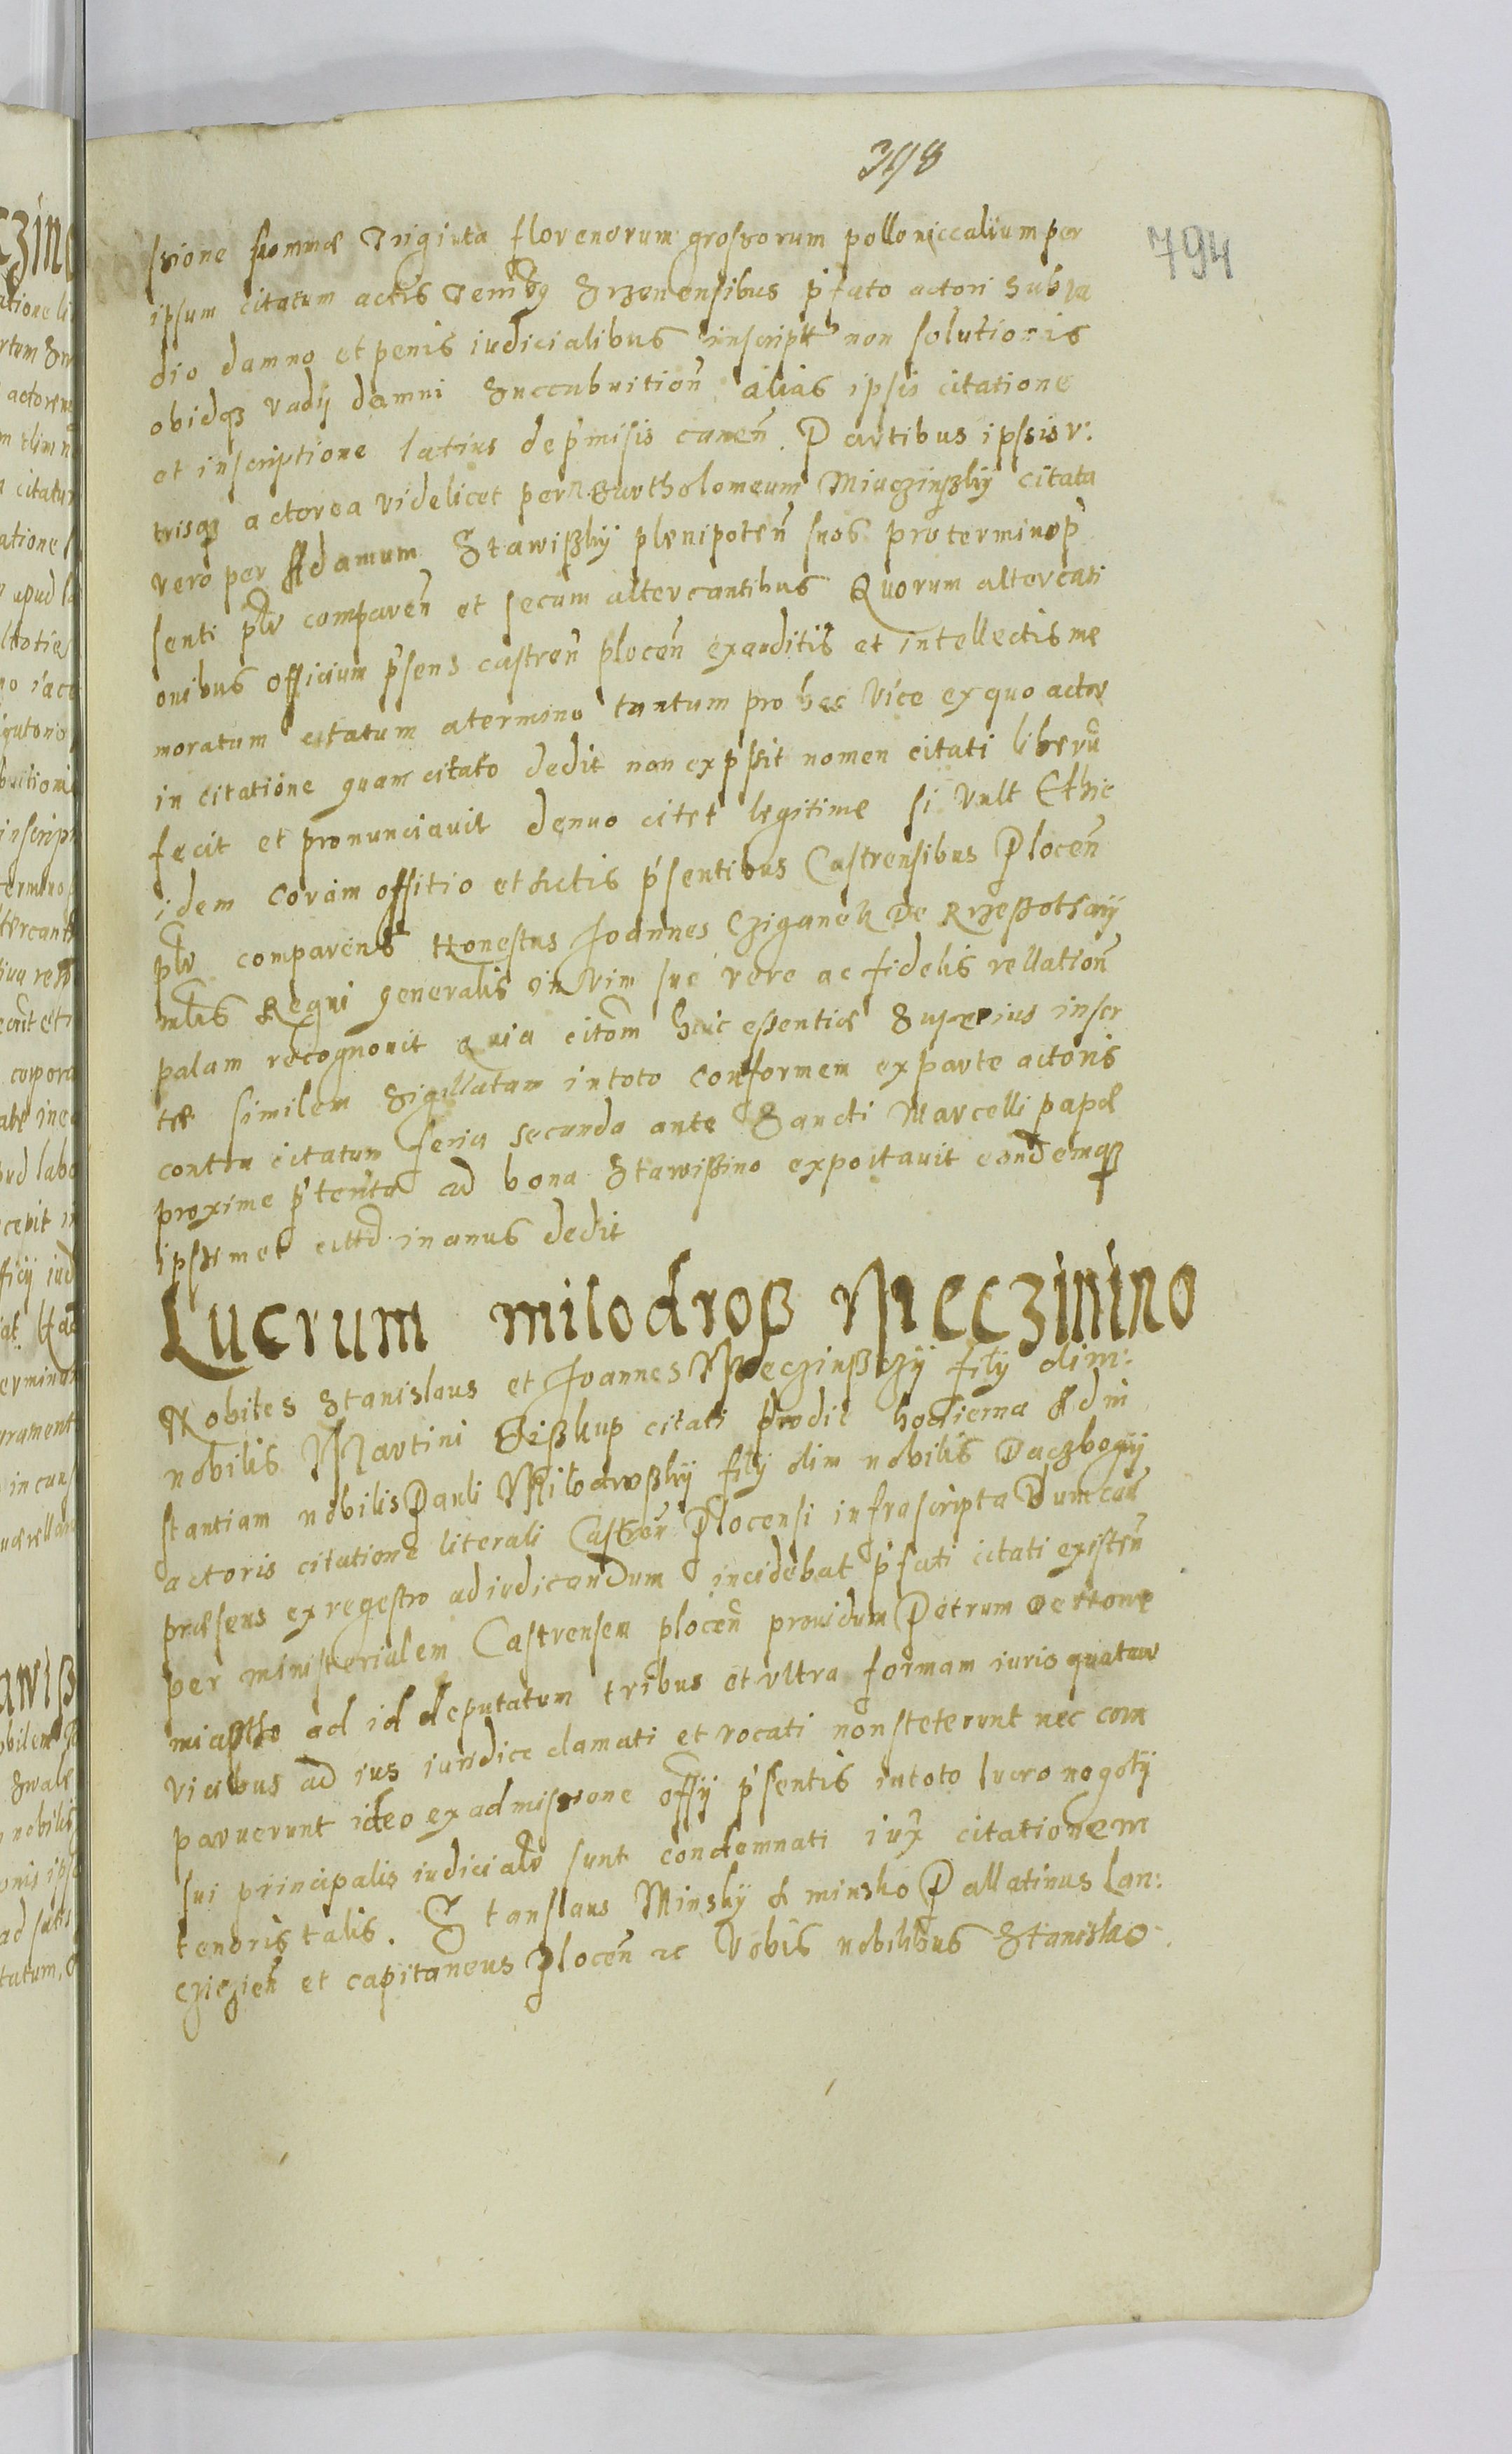 398
794
ssione summæ Triginta florenorum grossorum polloniccalium per
ipsum citatum actis Srzenensibus p̃fato actori sub va
dio damno et penis iudicialibus inscript non solutionis
obidqȝ vadij damni Succubuitioñ alias ipsis citatione
et inscriptione latius de p̃misis caneñ. Partibus ipssis v:
trisqȝ actorea videlicet per N Bartholomeum Miuczinßkÿ citata
vero per Adamum Stawißkÿ plenipoteñ suos pro termino p̃
senti pñr compareñ et secum altercantibus Quorum altercati
onibus officium p̃sens castreñ ploceñ exauditis et intellectis me
moratum citatum a termino tantum pro hac vice ex quo actor
in citatione quam citato dedit non exp̃ssit nomen citati liberũ
fecit et pronunciavit denuo citet legitime si vult Et hic
idem coram offitio et Actis p̃sentibus Castrensibus Ploceñ
pñr comparens Honestus Joannes Cziganek De Rzeßothaij
mlis Regni generalis in vim sue vere ac fidelis rellationẽ
palam recognovit Quia citom̃ huic essentiæ Superius inscr
tæ similem Sigillatam in toto conformem ex parte actoris
contra citatum feria secunda ante Sancti Marcelli papæ
proxime p̃terita ad bona Stawißino exportavit eandemqȝ
ipsimet cittõ in manus dedit
Lucrum milodroß Meczinino
Nobiles Stanislaus et Joannes Meczinßczÿ filÿ olim:
nobilis Martini Bißkup citati prodie hodierna Ad in
stantiam nobilis Pauli Milodroßkÿ filÿ olim nobilis Daczbogÿ
actoris citatione literali Castreñ Plocensi infrascripta Dum cau
præsens ex regestro adiudicandum incidebat p̃fati citati existeñ
per ministerialem Castrensem ploceñ providum Petrum
miastho ad id deputatum tribus et vltra formam iuris quatuor
vicibus ad ius iuridice clamati et vocati non steterunt nec com
paruerunt ideo ex admissione offÿ p̃sentis in toto lucro negotÿ
sui principalis iudicialr sunt condemnati iux̃ citationem
tenoris talis. Stanslaus Minskÿ d minsko Pallatinus Lan:
czicieñ et capitaneus Ploceñ ꝛc Vobis nobilibus Stanislao